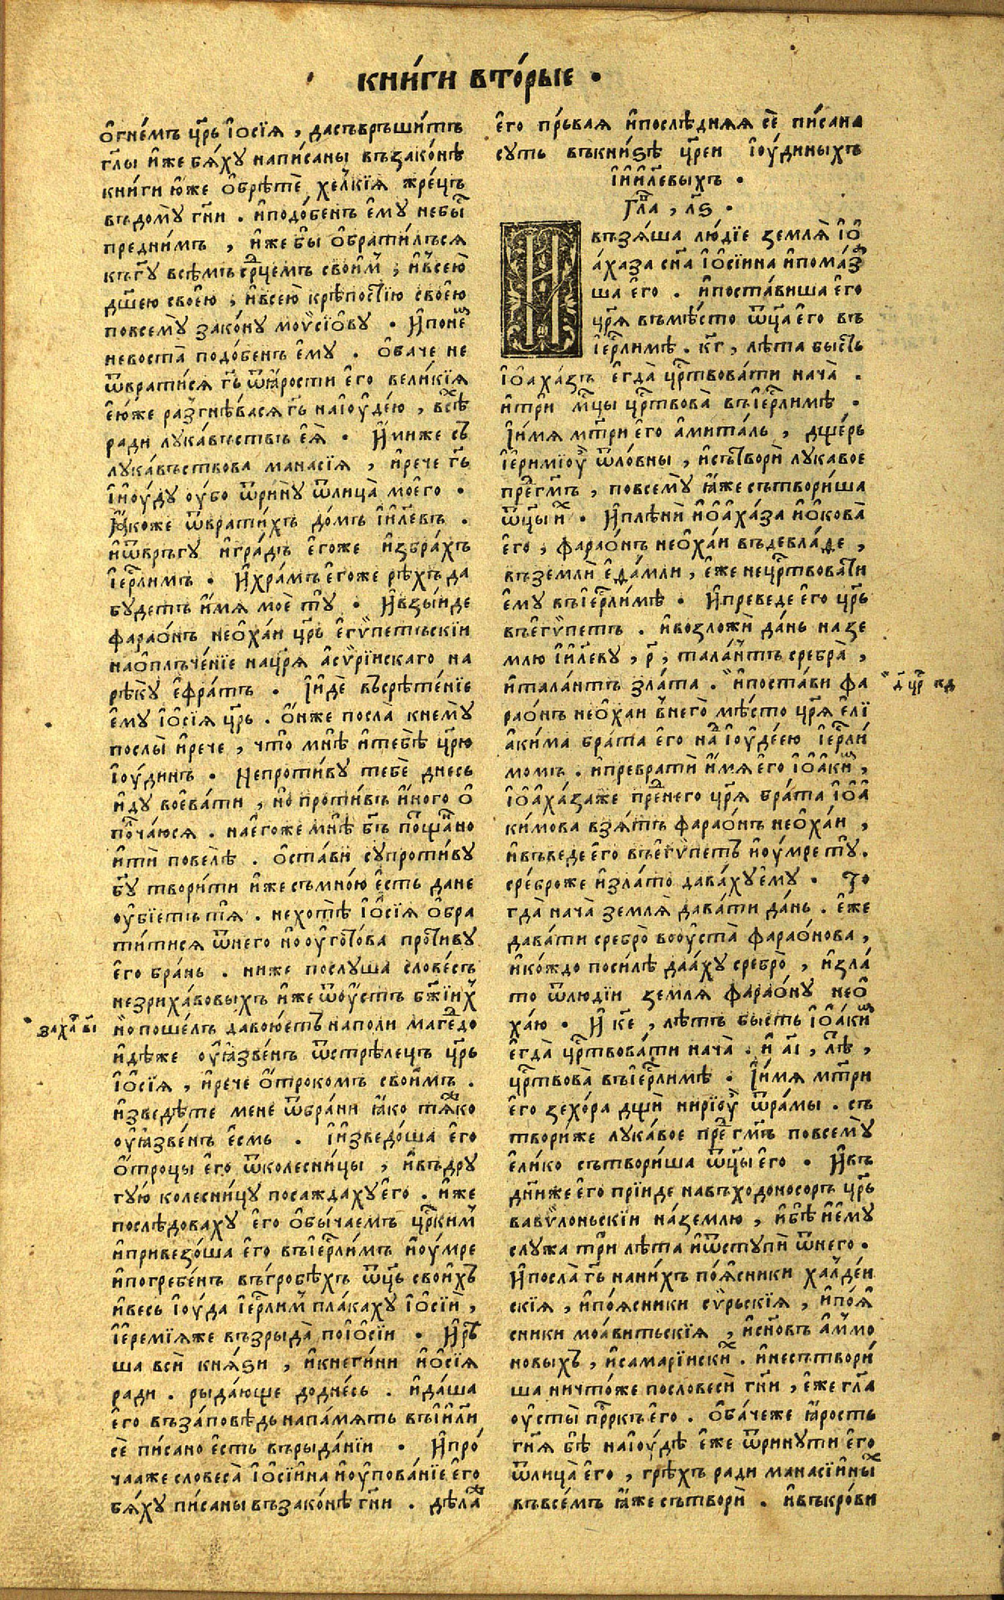 кни́ги вторы́е .
о҆гне́мъ цр҃ь і҆ѡсїѧ , даⷭ҇съвръши́тъ
гл҃ы и҆же бѧ́ху напи́саны въ зако́нѣ
книги ю҆же ѡ҆брѣ́те хелкїѧ жре́цъ
въ до́му гн҃и . и҆ подо́бенъ є҆му̀ небы́
преⷣнимъ , и҆же бы ѡ҆брати́лъсѧ
къ гу҃ всѣ́мъ срⷣцемъ свои҆м , и҆ все́ю
дш҃ею своею , и҆ все́ю крѣ́постїю своею
по всему̀ зако́ну мѡѵсїѡ҆ву . и҆ по не́м
не воста̀ подо́бенъ є҆му . ѡ҆баче не
ѿврати́сѧ гь҃ ѿ ꙗ҆рости е҆го вели́кїѧ
е҆ю́же разгнѣ́васѧ гь҃ на і҆ѹде́ю , всѣ
ради лука́вьствъ е҆ѧ̀ . и҆миже съ
лука́вьствова манасїѧ , и҆ рече гь҃
і҆ і҆ѹ́ду ѹ҆бо ѿри́ну ѿ лица̀ моего .
ꙗ҆коже ѿврати́хъ до́мъ і҆и҃левъ .
и҆ ѿвръ́гу и҆ гра́дъ е҆го́же и҆збра́хъ
і҆ерⷭ҇лимъ . и҆ хра́мъ е҆го́же рѣ́хъ да
бу́детъ и҆́мѧ моѐ тꙋ̀ . и҆ взы́иде
фараѡ́нъ неѡха́и цр҃ь е҆гѵ́петьскїи
на ѡ҆плъче́нїе на цр҃ѧ а҆сѵрїискаго на
рѣ́ку е҆фра́тъ . і҆ и҆́де въ срѣ́тенїе
е҆му і҆ѡсїѧ цр҃ь . ѡ҆́нже посла̀ к нему̀
послы̀ и҆ рече , что̀ мнѣ и҆ тебѣ цр҃ю
і҆ѹдинъ . не проти́ву тебѐ днесь
и҆ду воева́ти , но проти́въ и҆но́го ѡ҆
полча́юсѧ . на е҆го́же мнѣ̀ бг҃ъ по тща́но
и҆ти́ повелѣ . ѡ҆ста́ви супроти́ву
бу҃ твори́ти и҆же съ мно́ю е҆́сть да не
ѹ҆бїетъ тѧ̀ . не хотѣ̀ і҆ѡсїѧ ѡ҆бра
ти́тисѧ ѿ него но ѹ҆гото́ва проти́ву
е҆го бра́нь . ниже послу́ша слове́съ
незриха́вовыхъ и҆же ѿ ѹ҆стъ бж҃їихъ
но поше́лъ да воюетъ на поли маге́до
и҆дѣ́же ѹ҆ꙗ҆зве́нъ ѿ стрѣле́цъ цр҃ь
і҆ѡсїѧ , и҆ рече ѻ҆́трокомъ свои҆́мъ .
и҆зведѣ́те мене ѿ бра́ни ꙗ҆ко тѧ́жко
ѹ҆ꙗ҆зве́нъ е҆смь . і҆ и҆зведо́ша е҆го
ѻ҆́троцы е҆го ѿ колесни́цы , и҆ въ дру
гу́ю колесни́цу посажда́ху е҆го . и҆же
послѣ́доваху е҆го ѡ҆бы́чаемъ црⷭ҇ким
и҆ привезо́ша е҆го въ і҆ерⷭ҇лимъ и҆ ѹ҆мре
и҆ погребе́нъ въ гробѣ́хъ ѿц҃ъ свои҆́хъ
и҆ весь і҆ѹ́да і҆ерⷭ҇лим пла́каху і҆ѡсїи ,
і҆еремїѧже възрыда̀ по і҆ѡсїи . и҆ рѣ
ша всѝ кнѧ́ѕи , и҆ кнеги́ни и҆ ѡ҆сїѧ
ради . рыда́юще до дне́сь . и҆ да́ша
е҆го въ за́повѣдь на па́мѧть въ і҆и҃ли
сѐ пи́сано е҆сть въ рыда́нїи . и҆ про́
чааже словеса̀ і҆ѡсїина и҆ ѹ҆пова́нїе е҆го
бѧ́ху пи́саны въ зако́нѣ гн҃и . дѣлаⷤ
заха́ вı҃
е҆го пръ́ваѧ и҆ послѣ́днѧѧ сѐ пи́сана
суть въ кни́ѕѣ цр҃еи і҆ѹ́диныхъ
і҆ і҆и҃левыхъ .
Гла , лѕ .
И
възѧ́ша лю́дїе землѧ̀ і҆ѡ
а҆́хаза сн҃а і҆ѡсїина и҆ пома́з
ша е҆го . и҆ поста́виша е҆го
цр҃ѧ въ мѣ́сто ѿц҃а е҆го въ
і҆ерⷭ҇лимѣ . кг , лѣ́та бы́сть
і҆ѡа҆ха́зъ е҆гда̀ црⷭ҇твова́ти нача̀ .
и҆ три̑ мцⷭ҇ы црⷭ҇твова̀ въ і҆ерⷭ҇лимѣ .
і҆ и҆мѧ мт҃ри е҆го а҆мита́ль , дще́рь
і҆ереми́ѡѵ ѿ ло́вны , и҆ сътвори̑ лука́вое
преⷣ гмъ҃ , по всему̀ ꙗ҆́же сътвори́ша
ѿц҃ы и҆х . и҆ плѣнѝ и҆ѡа҆ха́за и҆ ѡ҆кова̀
е҆го , фараѡ́нъ неѡха́и въ девла́де ,
въ землѝ е҆да́мли , е҆́же не црⷭ҇твовати
е҆му въ і҆ерⷭ҇лимѣ . и҆ преведе е҆го цр҃ь
въ е҆гѵ́петъ . и҆ возложѝ да́нь на зе
млю і҆и҃леву , р҃ , тала́нтъ сребра̀ ,
и҆ тала́нтъ зла́та . и҆ поста́ви фа
раѡ́нъ неѡха́и в него мѣ́сто цр҃ѧ е҆лї
а҆кима бра́та е҆го на і҆ѹде́ею і҆ерⷭ҇ли
момъ . и҆ превратѝ и҆́мѧ е҆го і҆ѡа҆ким ,
і҆ѡа҆ха́заже пре́жнего цр҃ѧ бра́та і҆ѡа҆
ки́мова взѧ́тъ фараѡ́нъ неѡха́и ,
и҆ въведе е҆го въ е҆гѵ́петъ и҆ ѹ҆мре тꙋ̀.
сре́броже и҆ зла́то дава́ху е҆му . то
гда̀ нача̀ землѧ̀ дава́ти да́нь . е҆́же
дава́ти сребро̀ во ѹ҆ста̀ фараѡ́нова ,
и҆ ко́ждо по си́лѣ даа́ху сребро̀ , и҆ зла́
то ѿ лю́дїи землѧ̀ фараѡ́ну неѡ
ха́ю . и҆ ке҃ , лѣтъ бысть і҆ѡа҆ким
е҆гда̀ црⷭ҇твова́ти нача̀ . и҆ аı҃ , лѣ ,
црⷭ҇твова̀ въ і҆ерⷭ҇лимѣ . і҆ и҆мѧ мт҃ри
е҆го зехо́ра дщи̑ нирїѹ ѿ ра́мы . съ
твори́же лука́вое преⷣ гмъ҃ по всему̀
е҆лико сътвори́ша ѿц҃ы е҆го . и҆ въ
дни҃же е҆го прїиде на въходоносоръ цр҃ь
вавѵ́лоньскїи на́ землю , и҆ бѣ̀ и҆ е҆му
служа три̑ лѣта и҆ ѿступѝ ѿ него .
и҆ посла̀ гь҃ на ни́хъ по́ꙗсники халде́и
скїѧ , и҆ по́ꙗсники сѵ́рьскїѧ , и҆ по́ꙗ
сники моави́тьскїѧ , и҆ сн҃овъ а҆́ммо
новыхъ , и҆ самарїискиⷯ . и҆ не сътвори́
ша ничто́же по словесѝ гн҃и , е҆́же гл҃а
ѹ҆сты̀ прⷪ҇ркъ е҆го . ѡ҆ба́чеже ꙗ҆́рость
гн҃ѧ бѣ̀ на і҆ѹ́дѣ е҆́же ѿри́нути е҆го
ѿ лица̀ е҆го , грѣ́хъ ради манасїины
въ всѣ́мъ ꙗ҆́же сътворѝ . и҆ въ кро́ви
д҃ цр҃ кд